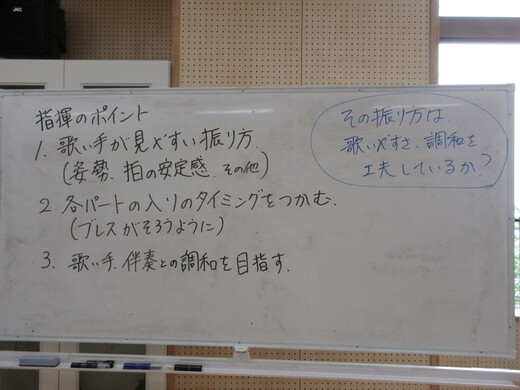 JVC
指揮のポイント
1. 歌い手が見やすい振り方.
(姿勢、拍の安定感、その他)
2. 各パートの入りのタイミングをつかむ.
(ブレスがそろうように)
3. 歌い手、伴奏との調和を目指す.
その振り方は
歌いやすさ、調和を
工夫しているか?